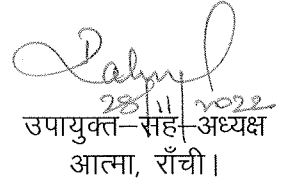 28/11/2022
उपायुक्त-सह-अध्यक्ष
आत्मा, राँची।